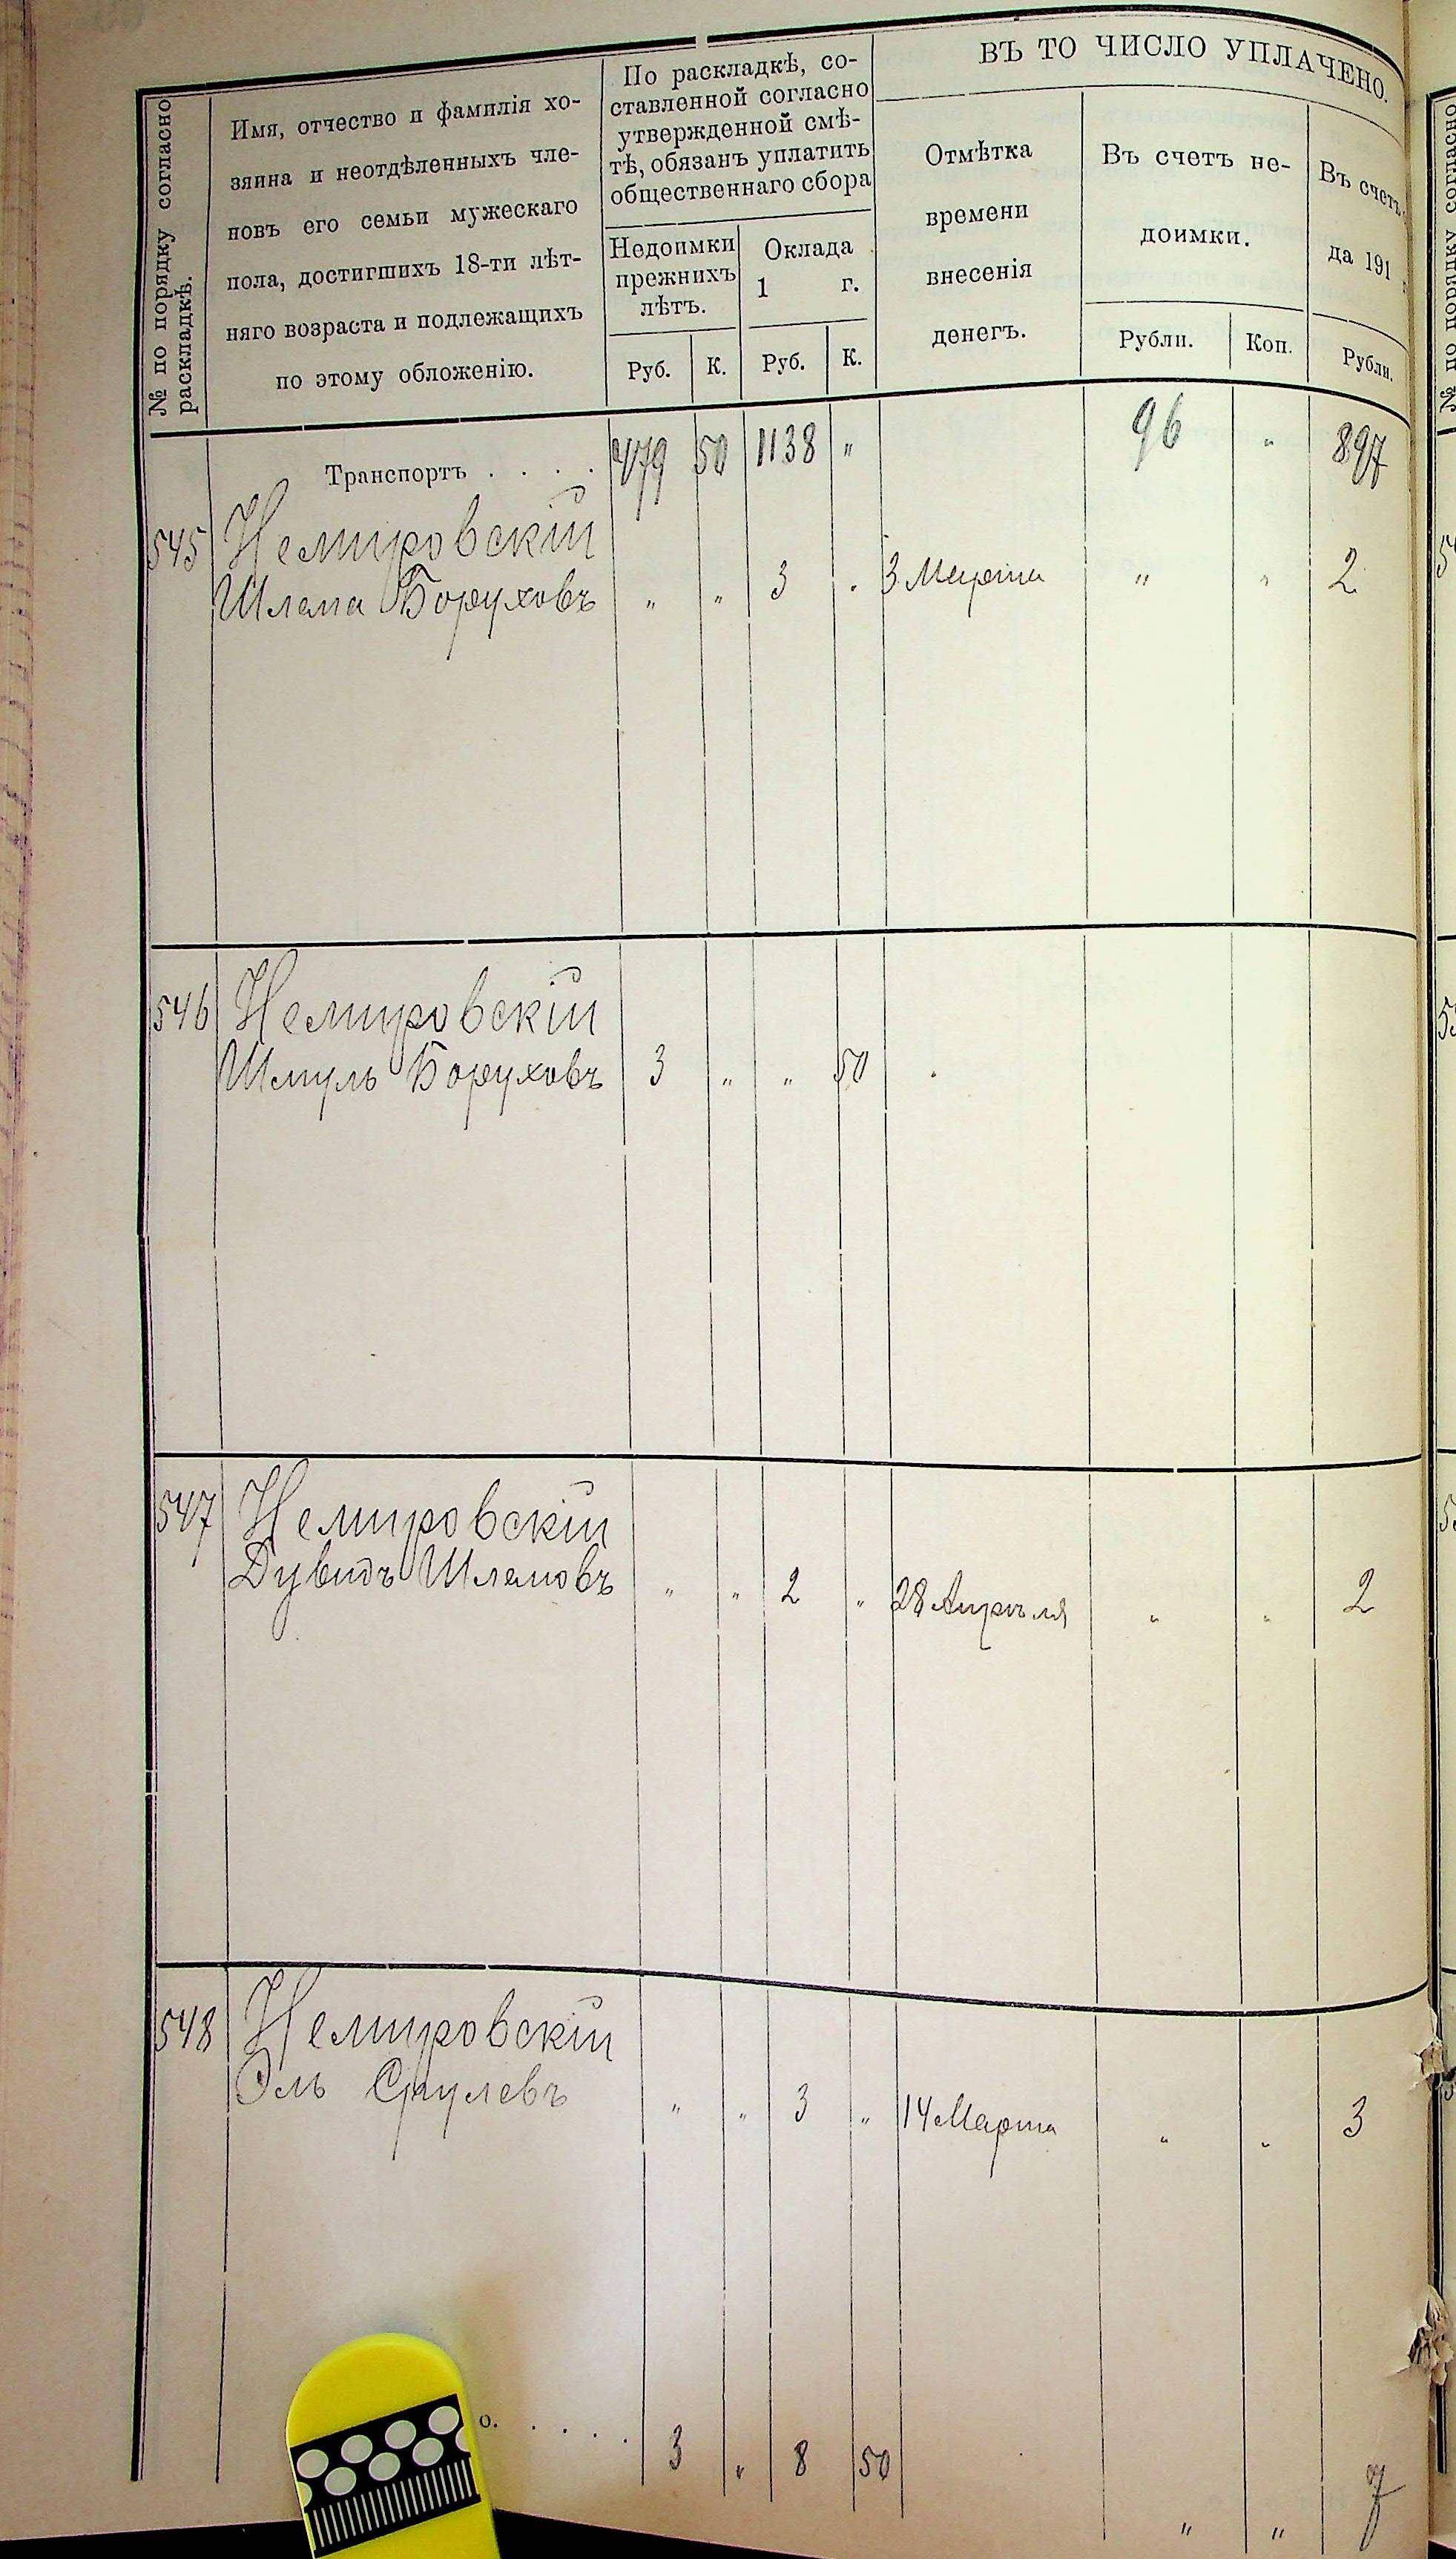 № по порядку согласно
раскладкѣ.
Имя, отчество и фамилія хо-
зяина и неотдѣленныхъ чле-
новъ его семьи мужескаго
пола, достигшихъ 18-ти лѣт-
няго возраста и подлежащихъ
по этому обложенію.
По раскладкѣ, со-
ставленной согласно
утвержденной смѣ-
тѣ, обязанъ уплатить
общественнаго сбора
Недоимки
прежнихъ
лѣтъ.
Оклада
1 г.
Руб. К. Руб. К.
ВЪ ТО ЧИСЛО УПЛАЧЕНО.
Отмѣтка
времени
внесенія
денегъ.
Въ счетъ не-
доимки.
Рубли. Коп.
Въ счетъ
да 191
Рубли.
Транспортъ . . . . 479 50 1138 „ 96 „ 897
545 Немировскій
Шлема Боруховъ „ „ 3 „ 3 Марта „ „ 2
546 Немировскій
Шмуль Боруховъ 3 „ „ 50
547 Немировскій
Дувидъ Шлемовъ „ „ 2 „ 28 Апрѣля „ „ 2
548 Немировскій
Эль Срулевъ „ „ 3 „ 14 Марта „ „ 3
о. . . . . 3 „ 8 50 „ „ 7
№ по порядку согласно